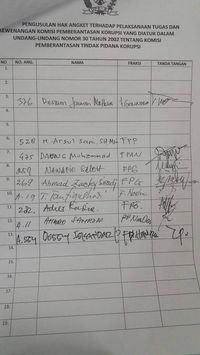 PENGUSULAN HAK ANGKET TERHADAP PELAKSANAAN TUGAS DAN
KEWENANGAN KOMISI PEMBERANTASAN KORUPSI YANG DIATUR DALAM
UNDANG-UNDANG NOMOR 30 TAHUN 2002 TENTANG KOMISI
PEMBERANTASAN TINDAK PIDANA KORUPSI
NO NO. ANG. NAMA FRAKSI TANDA TANGAN
1.
2.
3. 376 Desmon Junaidi Mahesa Gerindra
4.
5.
6. 528 M. Arsul Sani, SH PPP
7. 475 Daeng Muhammad PAN
8. FPG
9. 269 Ahmad Zacky Siradj FPG
10. A.19 T. Taufiqulhadi F. Nasdem
11. 282. FPG
12. A.11 Ahmad Sahroni
13. Dossy Iskandar F. Hanura
14.
15.
16.
17.
18.
19.